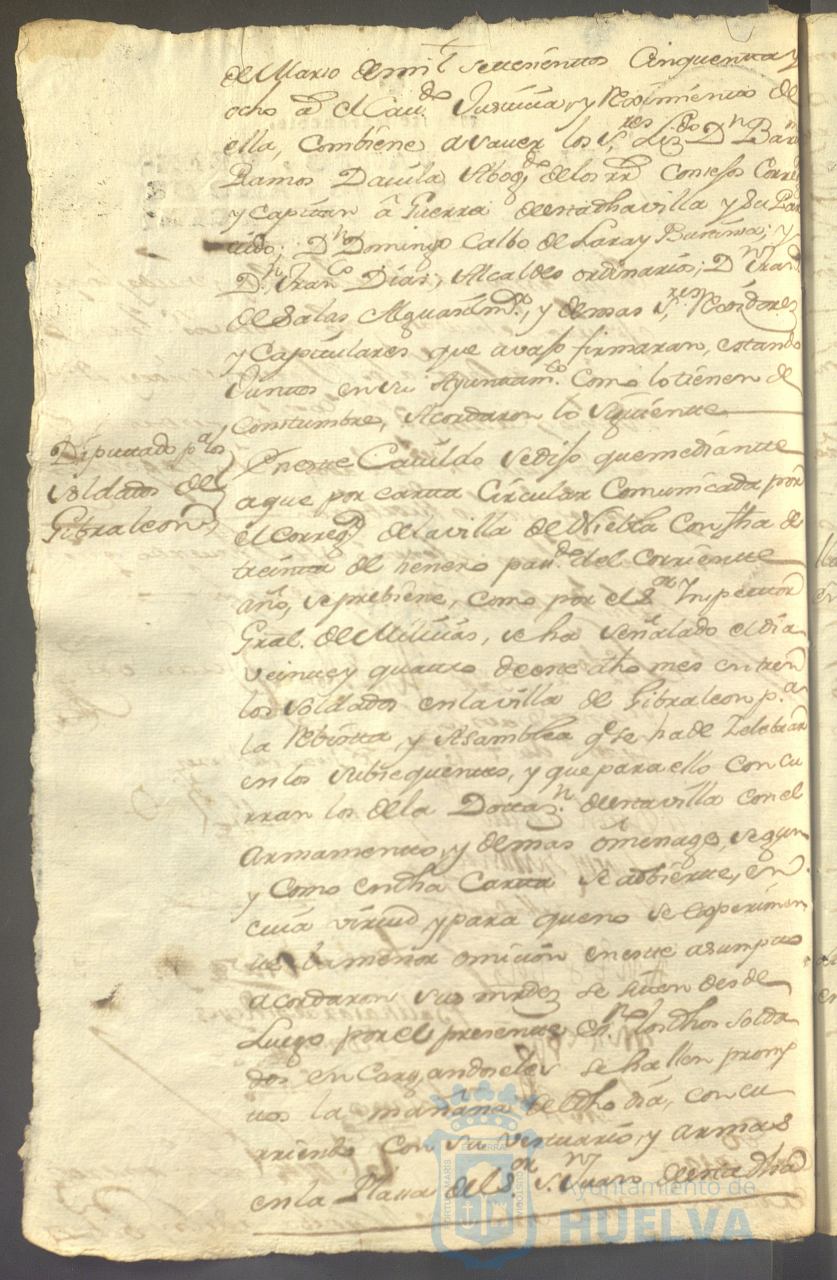 de Marzo de mil setesientos Cinquenta y
ocho as. el Cav.do Justicia, y Reximiento de
ella, Combiene a saver los S.res Liz.do D.n Bar.me
Ramos Davila Abog.do de los rr.s Consejos Corre.
y Capitan â Guerra desta dha villa y su Par
tido; D.n Domingo Calbo de Lara y Bar
D.n Fran.co Dias, Alcaldes ordinarios; D.n Fran.co
de Salas Alguasil m.or, y demas S.res Rexidores
y Capitulares que avajo firmaran, estando
Juntos en su Ayuntam.to Como lo tienen de
Constumbre, Acordaron lo siguiente
Diputado p.a los
soldados de
Gibraleon
En este Cavildo se dijo que mediante
a que por carta Circular Comunicada por
el Correg.or de la villa de Niebla Con fha de
treinta de henero pas.do del Corriente
año, se prebiene, como por el S.or Inspector
Gral. de Milicias, se ha señalado el dia
veinte y quattro de este dho mes entren
los soldados en la villa de Gibraleon p.a
la Rebista, y Asamblea q.e se ha de Zelebrar
en los subsequentes, y que para ello concu
rran los de la Dottaz.n desta villa con el
Armamento, y demas omenage, segun
y Como en dha Carta se adbierte, en
cuia virtud y para que no se experimen
te la menor omicion en este asumpto
acordaron sus mrdez se siten desde
Luego por el presente es.no los dhos solda
dos en Cargandoles se hallen promp
tos la mañana de dho dia, con cu
rriendo con su vestuario, y armas
en la Plassa del S.or S.n Juan desta dha
Ayuntamiento de
HUELVA